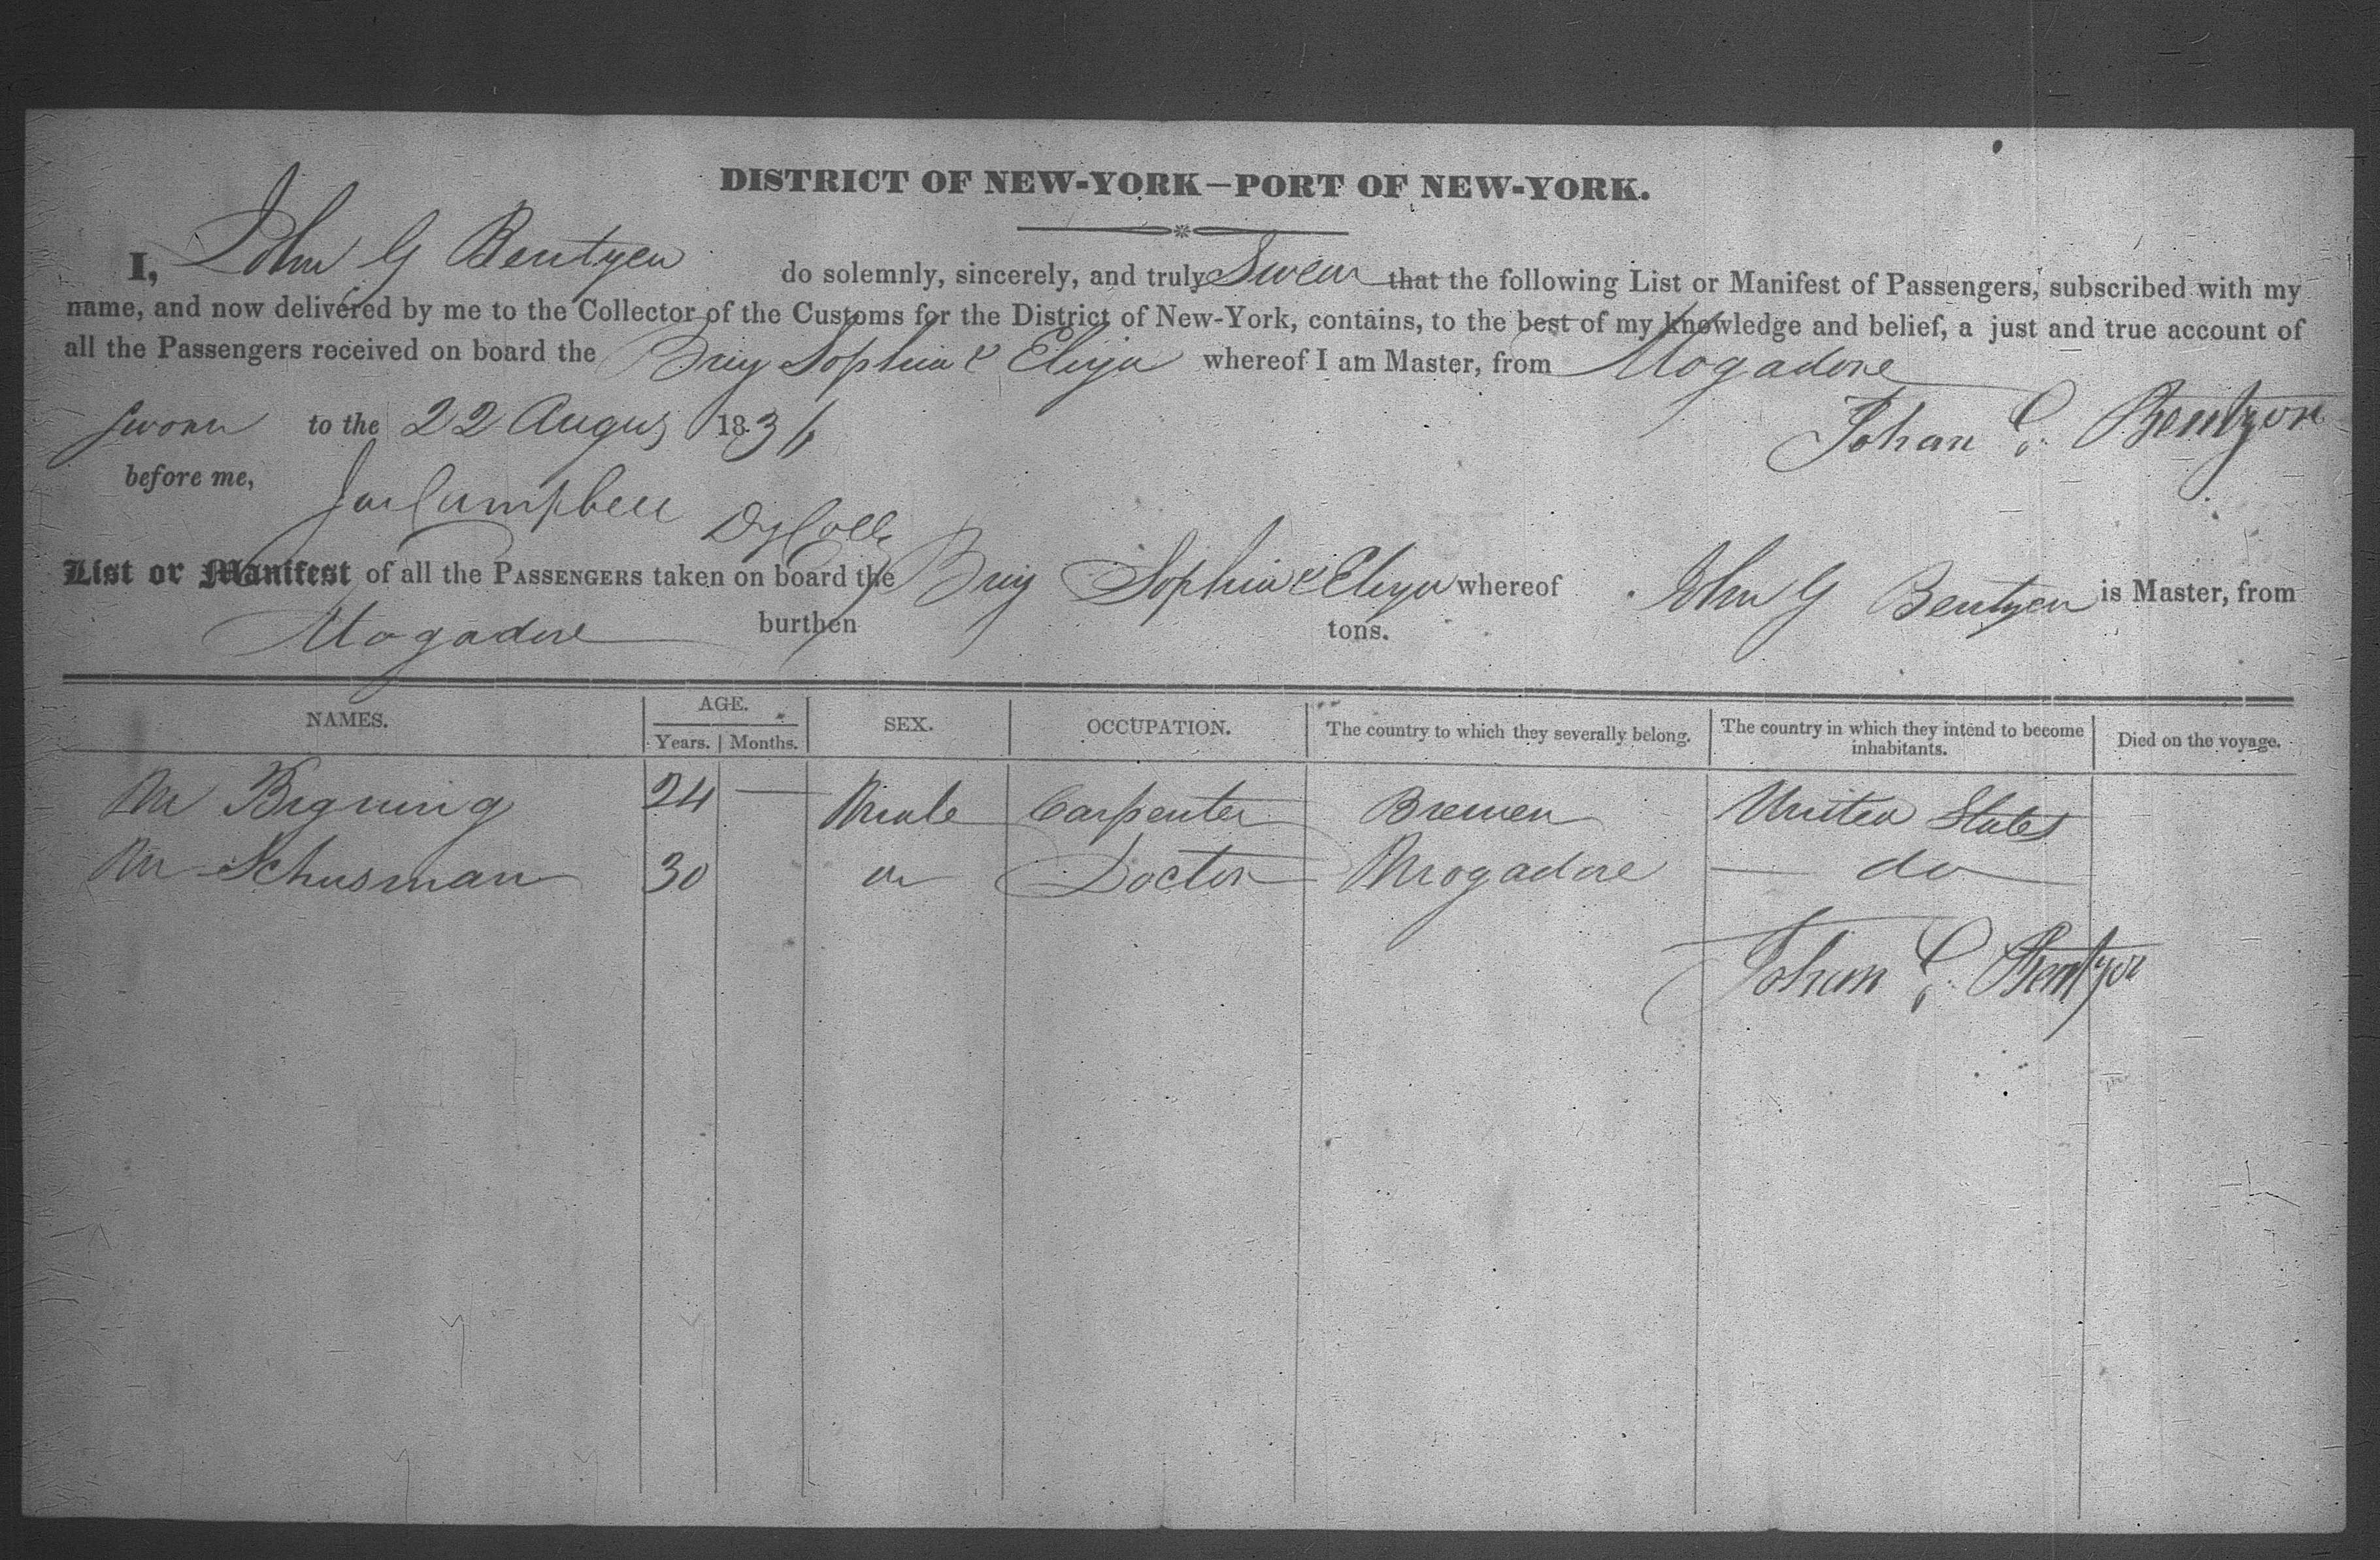 DISTRICT OF NEW-YORK—PORT OF NEW-YORK.
I, John G Bentzen do solemnly, sincerely, and truly Swear that the following List or Manifest of Passengers, subscribed with my
name, and now delivered by me to the Collector of the Customs for the District of New-York, contains, to the best of my knowledge and belief, a just and true account of
all the Passengers received on board the Brig Sophia & Eliza whereof I am Master, from Mogadore
Sworn to the 22 Augus 1836 Johan C. Bentzon
before me,
Jas Campbell Dy Coll
List or Manifest of all the PASSENGERS taken on board the Brig Sophia & Eliza whereof John G Bentzen is Master, from
Mogadore burthen tons.
NAMES. AGE. SEX. OCCUPATION. The country to which they severally belong. The country in which they intend to become inhabitants. Died on the voyage.
Years. Months.
Mr 24 — Male Carpenter Bremen United States
Mr Schusman 30 do Doctor Mogadore — do
Johan C. Bentzon